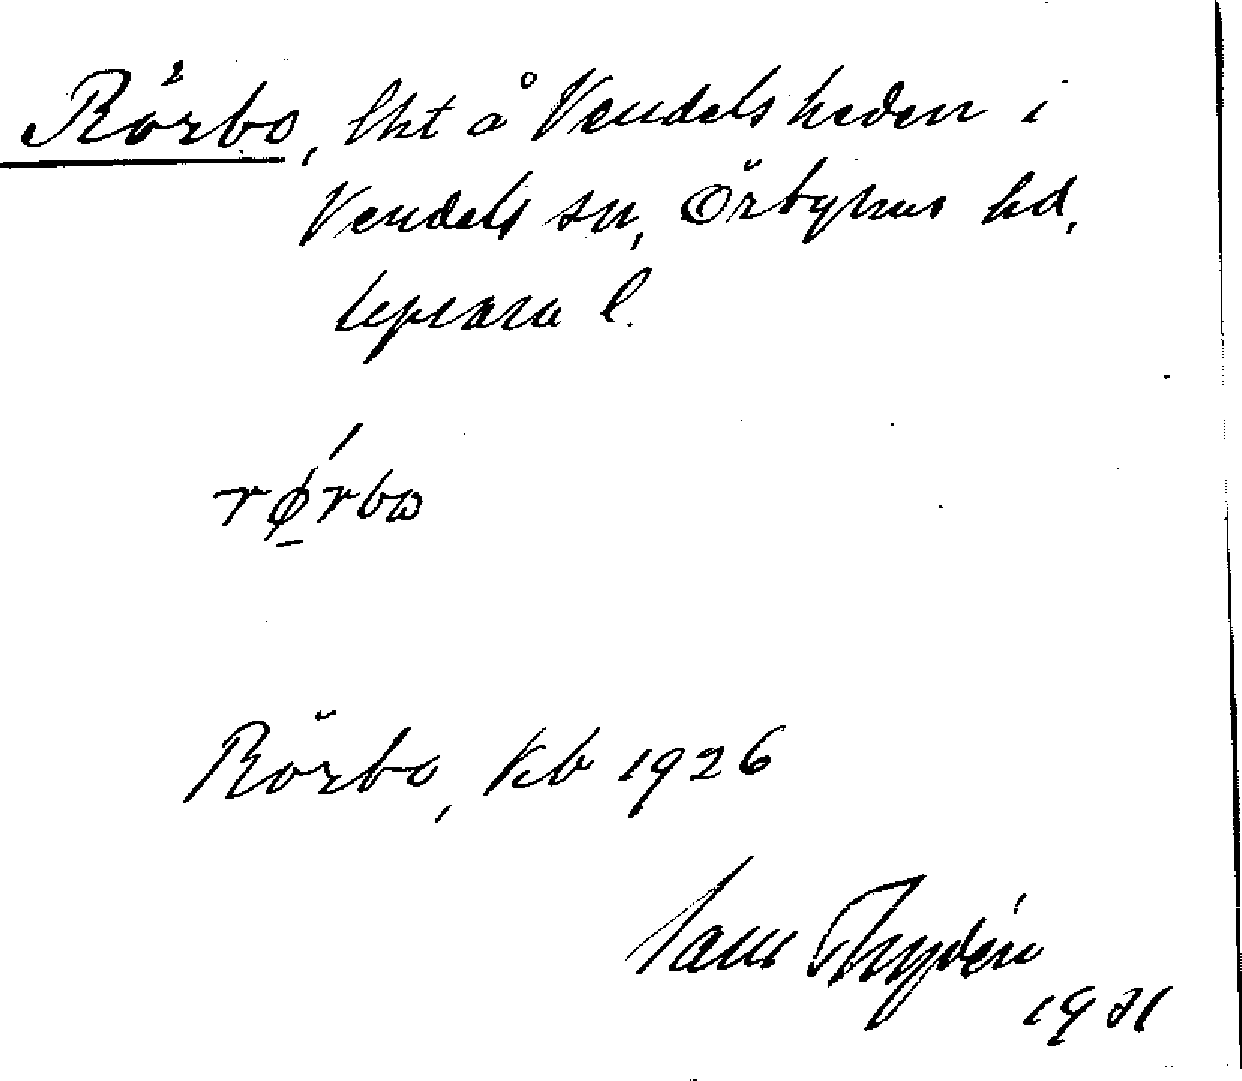 Rörbo, lht å Vendelsheden i
Vendels sn, Örbyhus hd,
Uppsala l.
rǿ̱rbɷ
Rörbo, Kb 1926
Sam Thydén
1931